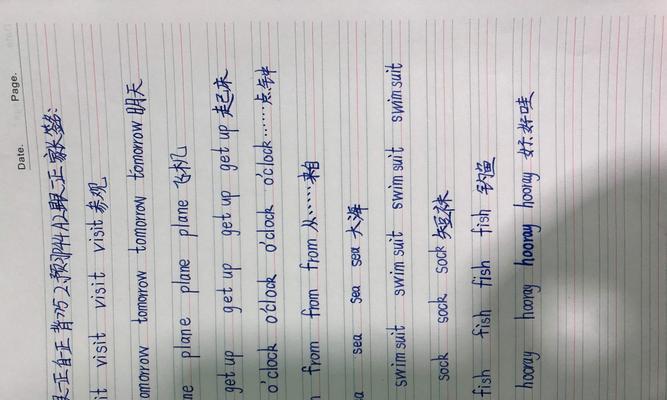 Date. Page.
正自正 背 75 2.预习44 A2 正 家长签名:
it visit visit visit 参观
omorrow tomorrow tomorrow tomorrow 明天
ne plane plane plane 飞机
get up get up get up get up 起床
o'clock o'clock o'clock o'clock……点钟
from from from 从……来自
a sea sea sea 大海
swimsuit swimsuit swimsuit swimsuit
sock sock sock 短袜
fish fish fish fish 钓鱼
hooray hooray hooray hooray 好好哇